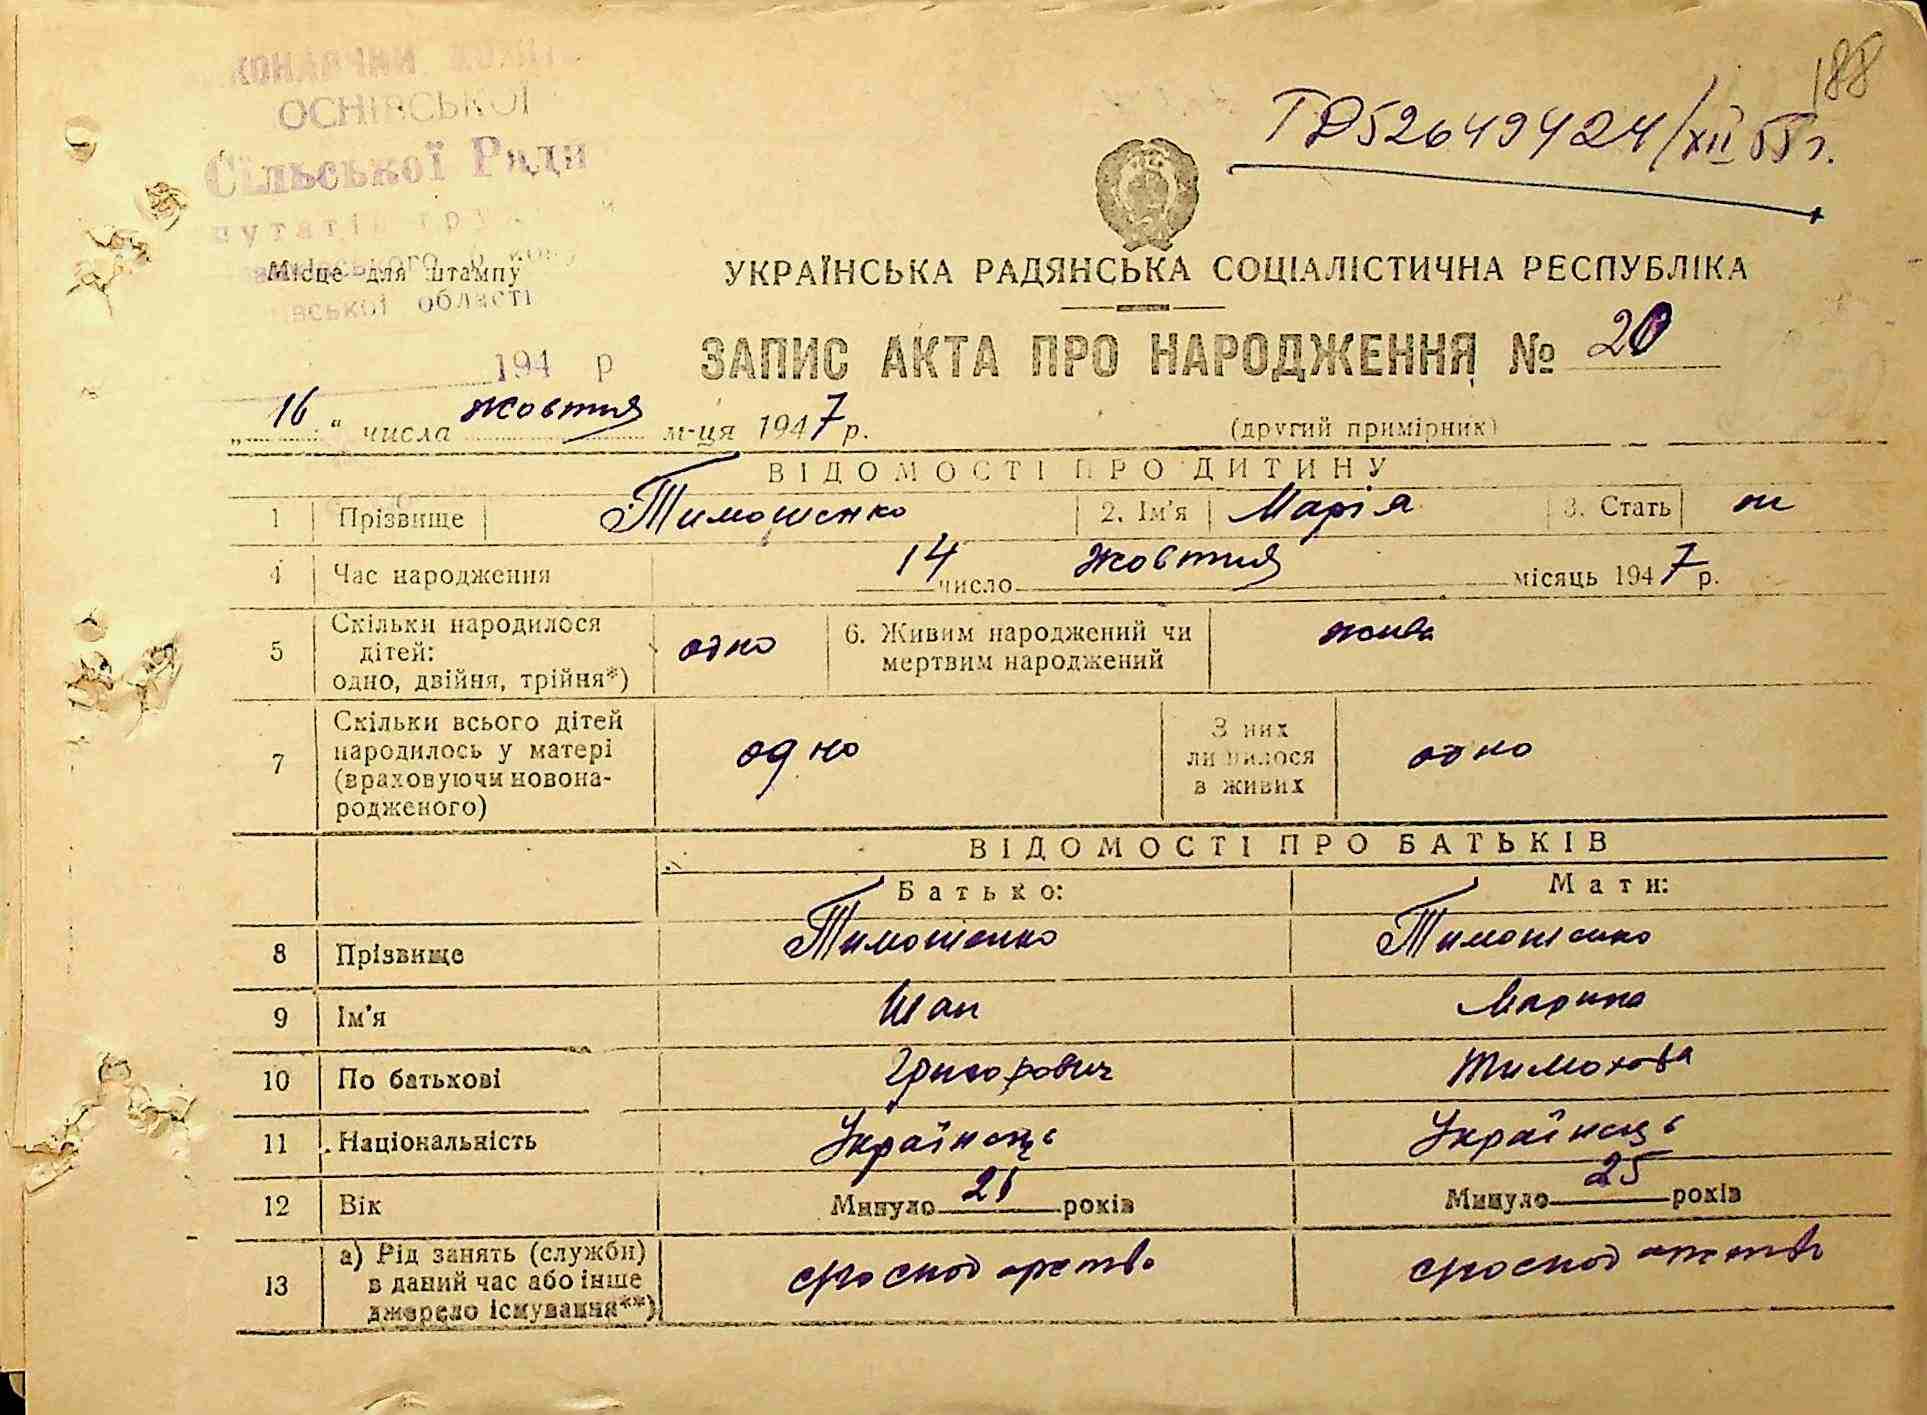 188
ОСНІВСЬКОЇ
Сільської Ради
Місце для штампу
області
194 р
УКРАЇНСЬКА РАДЯНСЬКА СОЦІАЛІСТИЧНА РЕСПУБЛІКА
ЗАПИС АКТА ПРО НАРОДЖЕННЯ № 20
„16" числа жовтня м-ця 1947 р. (другий примірник)
ВІДОМОСТІ ПРО ДИТИНУ
1 Прізвище Тимошенко 2. Ім'я Марія 3. Стать
4 Час народження 14 число жовтня місяць 1947 р.
5 Скільки народилося дітей: одно, двійня, трійня*) одно 6. Живим народжений чи мертвим народжений жива
7 Скільки всього дітей народилось у матері (враховуючи новонародженого) одно З них лишилося в живих одно
ВІДОМОСТІ ПРО БАТЬКІВ
Батько: Мати:
8 Прізвище Тимошенко Тимошенко
9 Ім'я Марина
10 По батькові Григорович Тимохова
11 Національність Українець Українець
12 Вік Минуло років Минуло 25 років
13 а) Рід занять (служби) в даний час або інше джерело існування**)